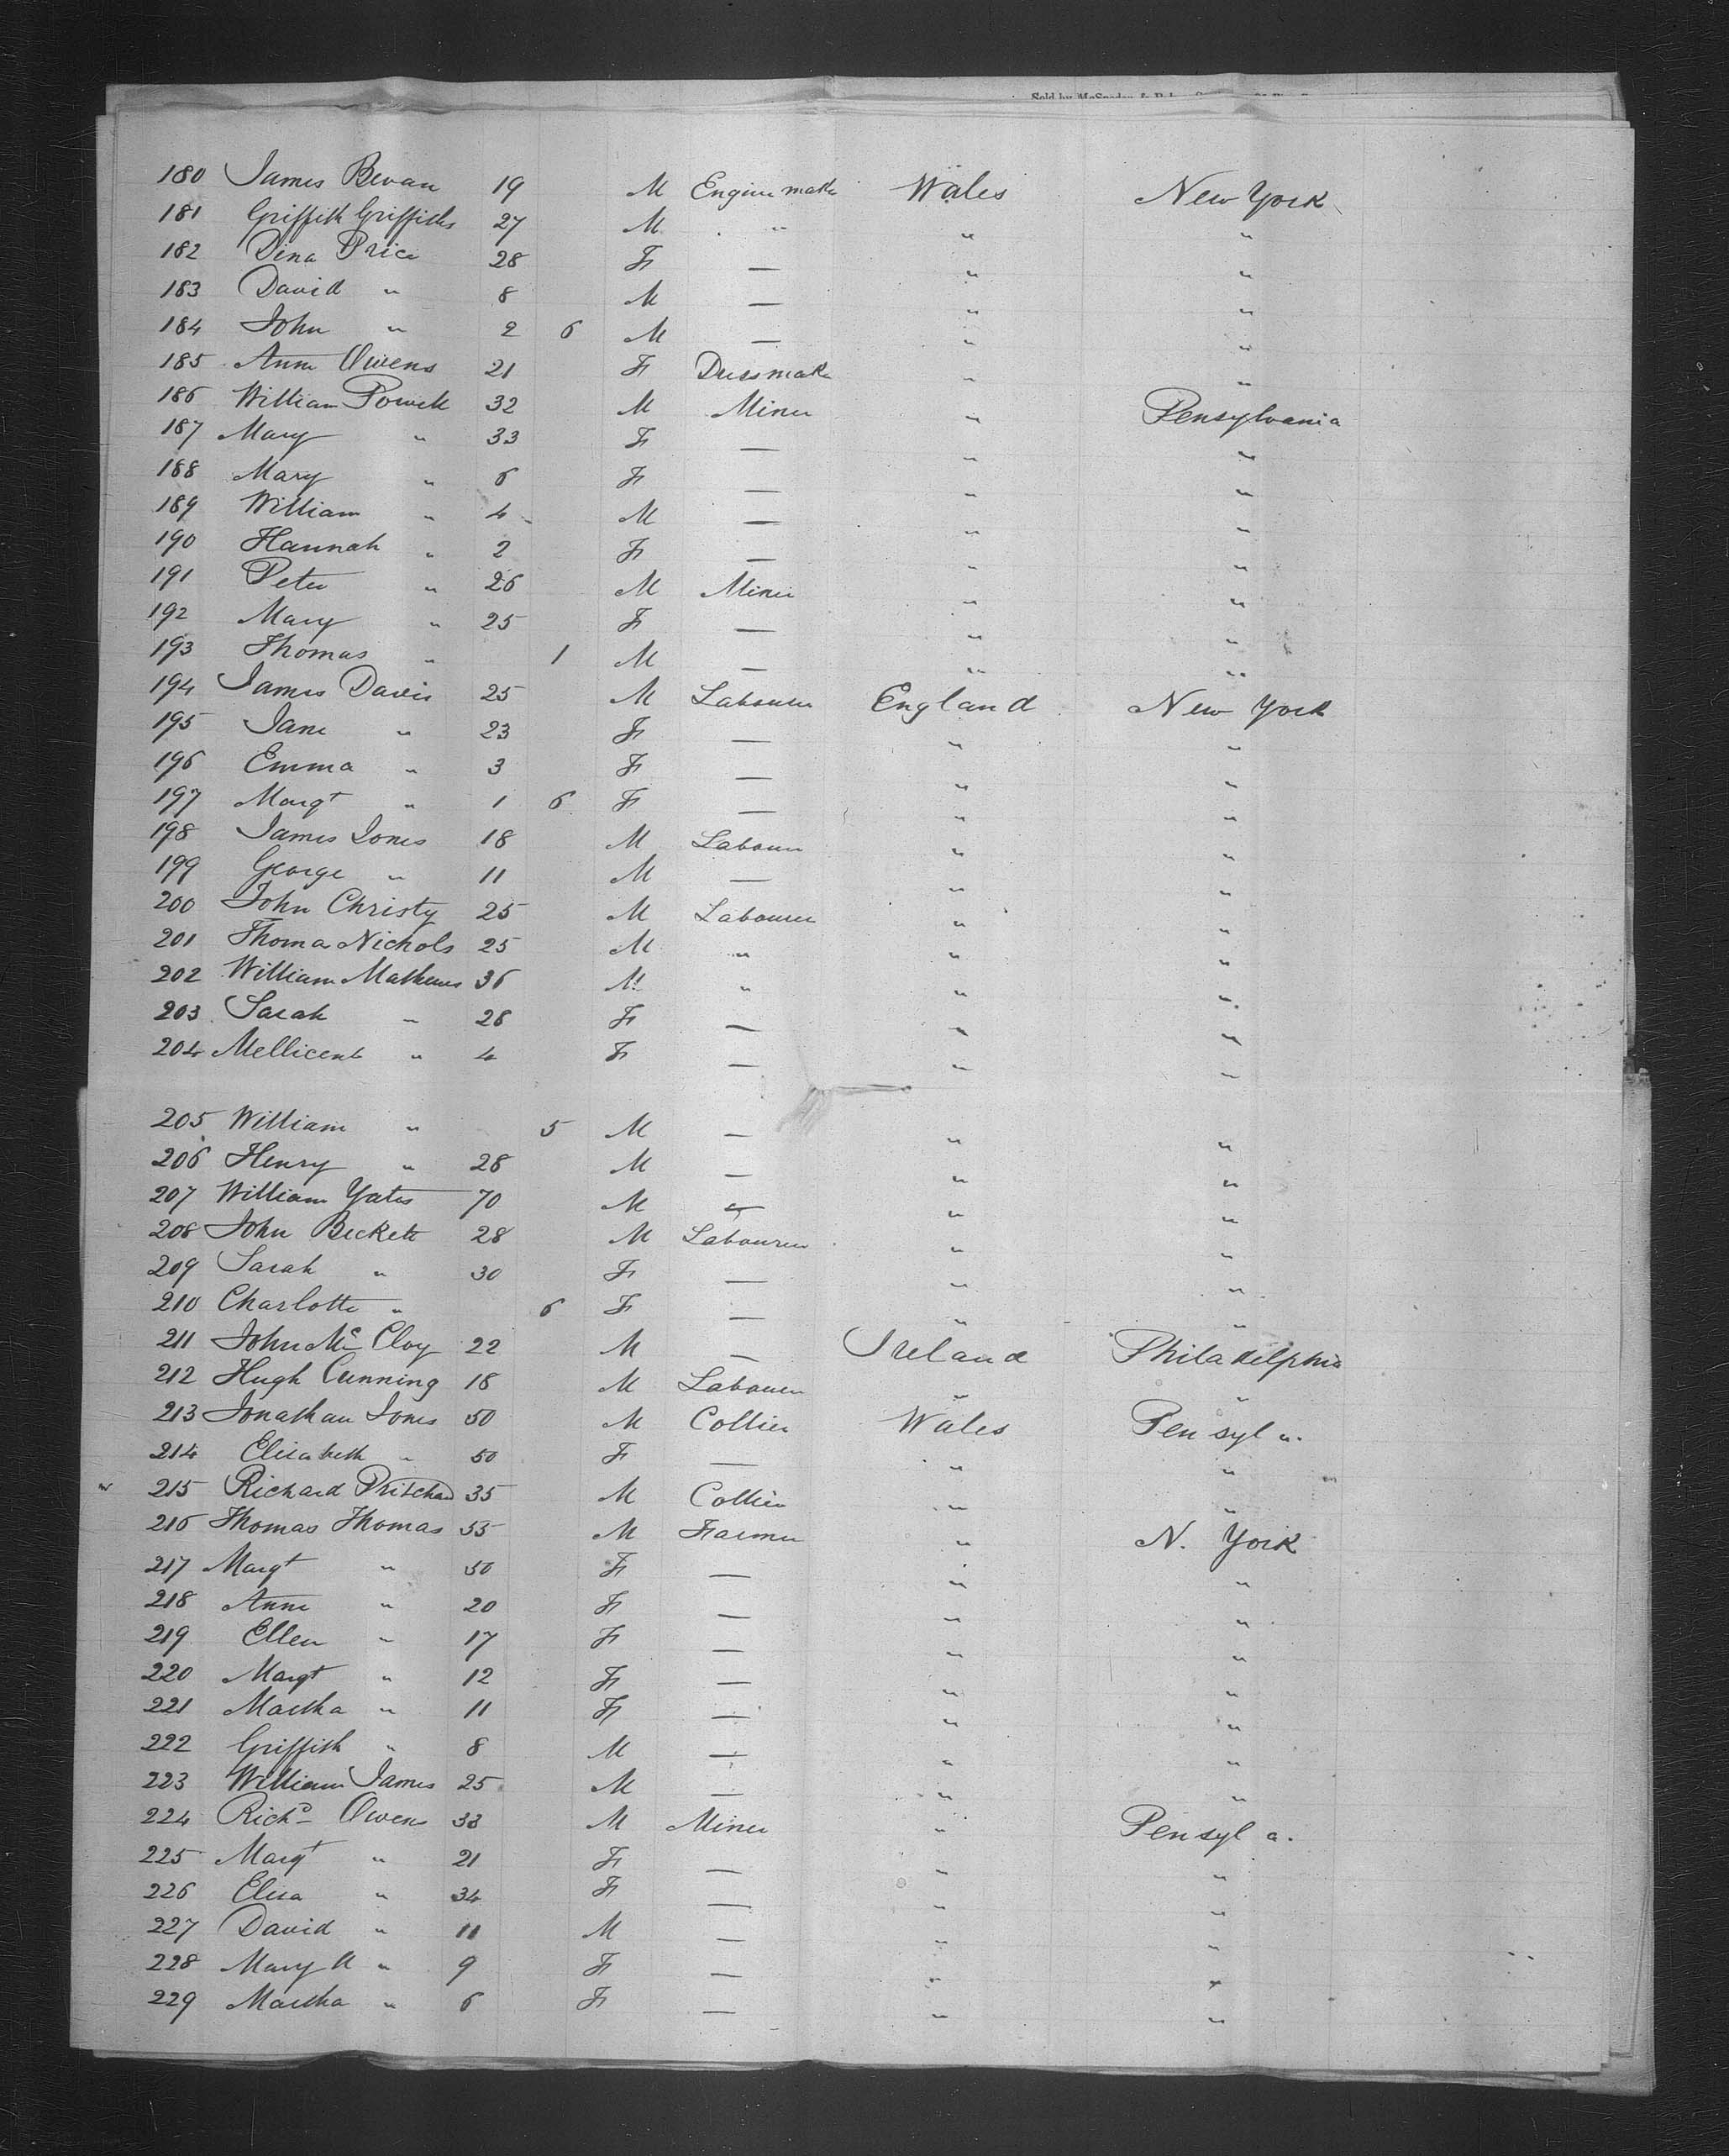 180 James Bevan 19 M Engine maker Wales New York
181 Griffith Griffiths 27 M " " "
182 Dina Price 28 F — " "
183 David " 8 M — " "
184 John " 2 6 M — " "
185 Ann Owens 21 F Dressmaker " "
186 William Powell 32 M Miner " Pensylvania
187 Mary " 33 F — " "
188 Mary " 6 F — " "
189 William " 4 M — " "
190 Hannah " 2 F — " "
191 Peter " 26 M Miner " "
192 Mary " 25 F — " "
193 Thomas " 1 M — " "
194 James Davis 25 M Labourer England New York
195 Jane " 23 F — " "
196 Emma " 3 F — " "
197 Margt " 1 6 F — " "
198 James Jones 18 M Labourer " "
199 George " 11 M — " "
200 John Christy 25 M Labourer " "
201 Thomas Nichols 25 M " " "
202 William Mathews 36 M " " "
203 Sarah " 28 F — " "
204 Mellicent " 4 F — " "
205 William " 5 M — " "
206 Henry " 28 M — " "
207 William Yates 70 M — " "
208 John Beckett 28 M Labourer " "
209 Sarah " 30 F — " "
210 Charlotte " 6 F — " "
211 John McCloy 22 M — Ireland Philadelphia
212 Hugh Cunning 18 M Labourer " "
213 Jonathan Jones 50 M Collier Wales Pensyl a.
214 Elisabeth " 50 F — " "
215 Richard Pritchard 35 M Collier " "
216 Thomas Thomas 55 M Farmer " N. York
217 Margt " 50 F — " "
218 Anne " 20 F — " "
219 Ellen " 17 F — " "
220 Margt " 12 F — " "
221 Martha " 11 F — " "
222 Griffith " 8 M — " "
223 William James 25 M — " "
224 Richd Owens 33 M Miner " Pensyl a.
225 Margt " 21 F — " "
226 Elisa " 34 F — " "
227 David " 11 M — " "
228 Mary A " 9 F — " "
229 Martha " 6 F — " "